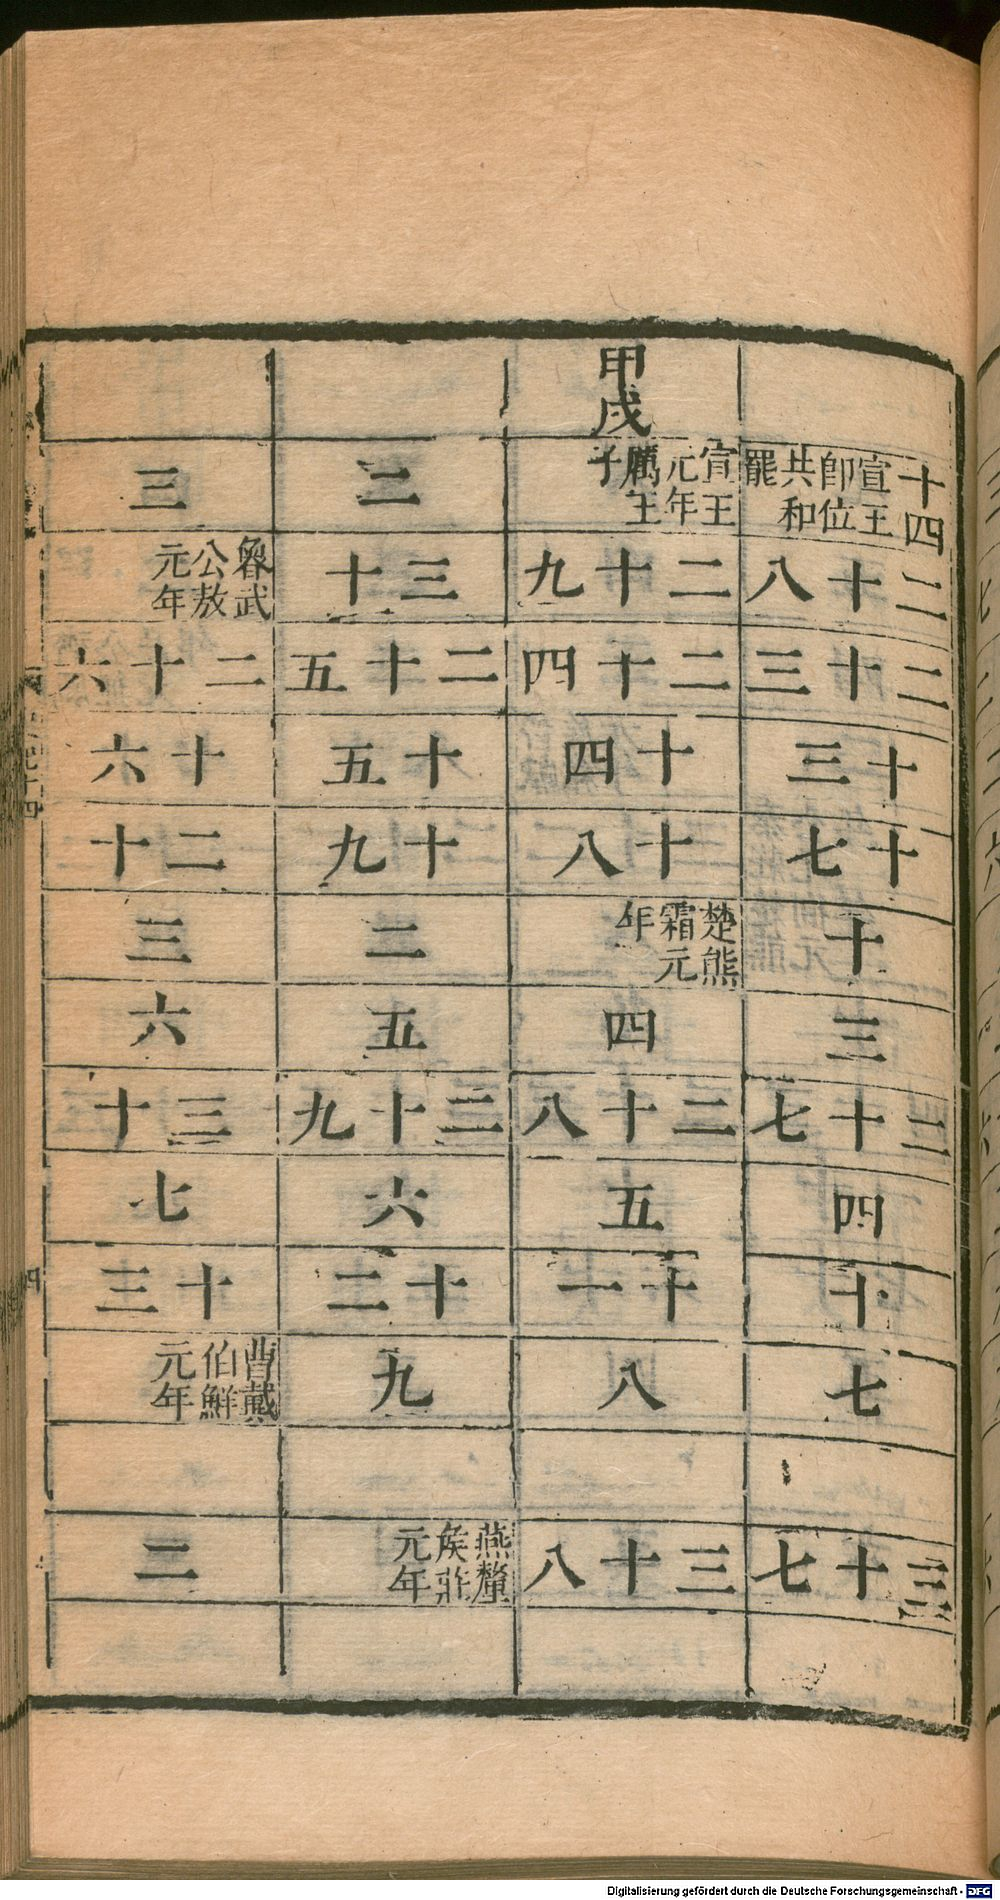 十四
宣王
卽位
共和
罷
二十八
二十三
十三
十七
十
三
二十七
四
十
七
三十七
甲戌
宣王
元年
厲王
子
二十九
二十四
十四
十八
楚熊
霜元
年
四
二十八
五
十一
八
三十八
二
三十
二十五
十五
十九
二
五
二十九
六
十二
九
燕釐
矦莊
元年
三
魯武
公敖
元年
二十六
十六
二十
三
六
三十
七
十三
曹戴
伯鮮
元年
二
Digitalisierung gefördert durch die Deutsche Forschungsgemeinschaft - DFG